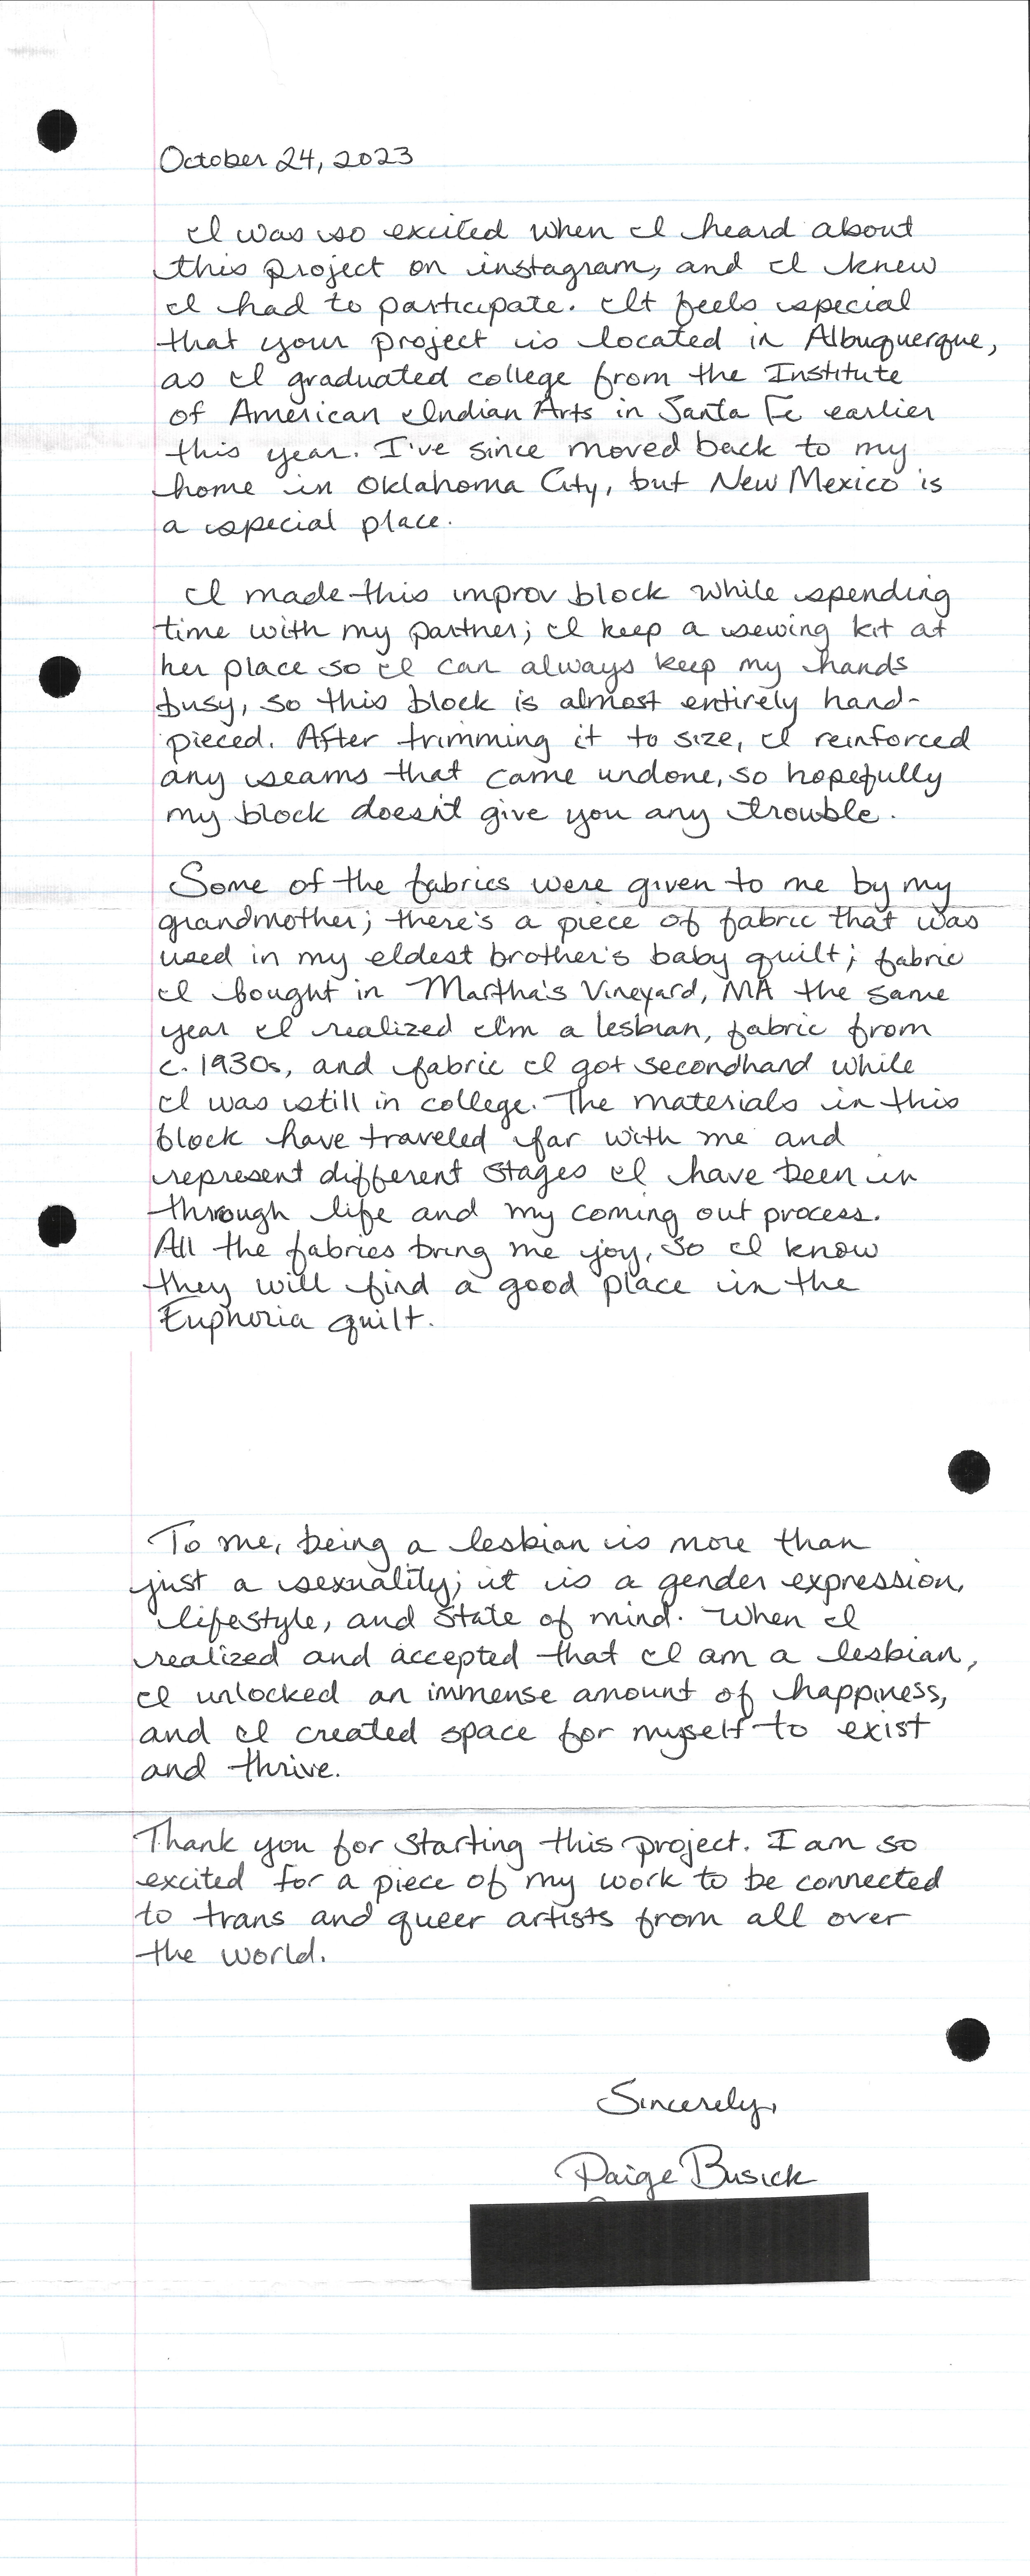 October 24, 2023
I was so excited when I heard about
this project on instagram, and I knew
I had to participate. It feels special
that your project is located in Albuquerque,
as I graduated college from the Institute
of American Indian Arts in Santa Fe earlier
this year. I've since moved back to my
home in Oklahoma City, but New Mexico is
a special place.
I made this improv block while spending
time with my partner; I keep a sewing kit at
her place so I can always keep my hands
busy, so this block is almost entirely hand-
pieced. After trimming it to size, I reinforced
any seams that came undone, so hopefully
my block doesn't give you any trouble.
Some of the fabrics were given to me by my
grandmother; there's a piece of fabric that was
used in my eldest brother's baby quilt; fabric
I bought in Martha's Vineyard, MA the same
year I realized I'm a lesbian, fabric from
c. 1930s, and fabric I got secondhand while
I was still in college. The materials in this
block have traveled far with me and
represent different stages I have been in
through life and my coming out process.
All the fabrics bring me joy, so I know
they will find a good place in the
Euphoria quilt.
To me, being a lesbian is more than
just a sexuality; it is a gender expression,
lifestyle, and state of mind. When I
realized and accepted that I am a lesbian,
I unlocked an immense amount of happiness,
and I created space for myself to exist
and thrive.
Thank you for starting this project. I am so
excited for a piece of my work to be connected
to trans and queer artists from all over
the world.
Sincerely,
Paige Busick